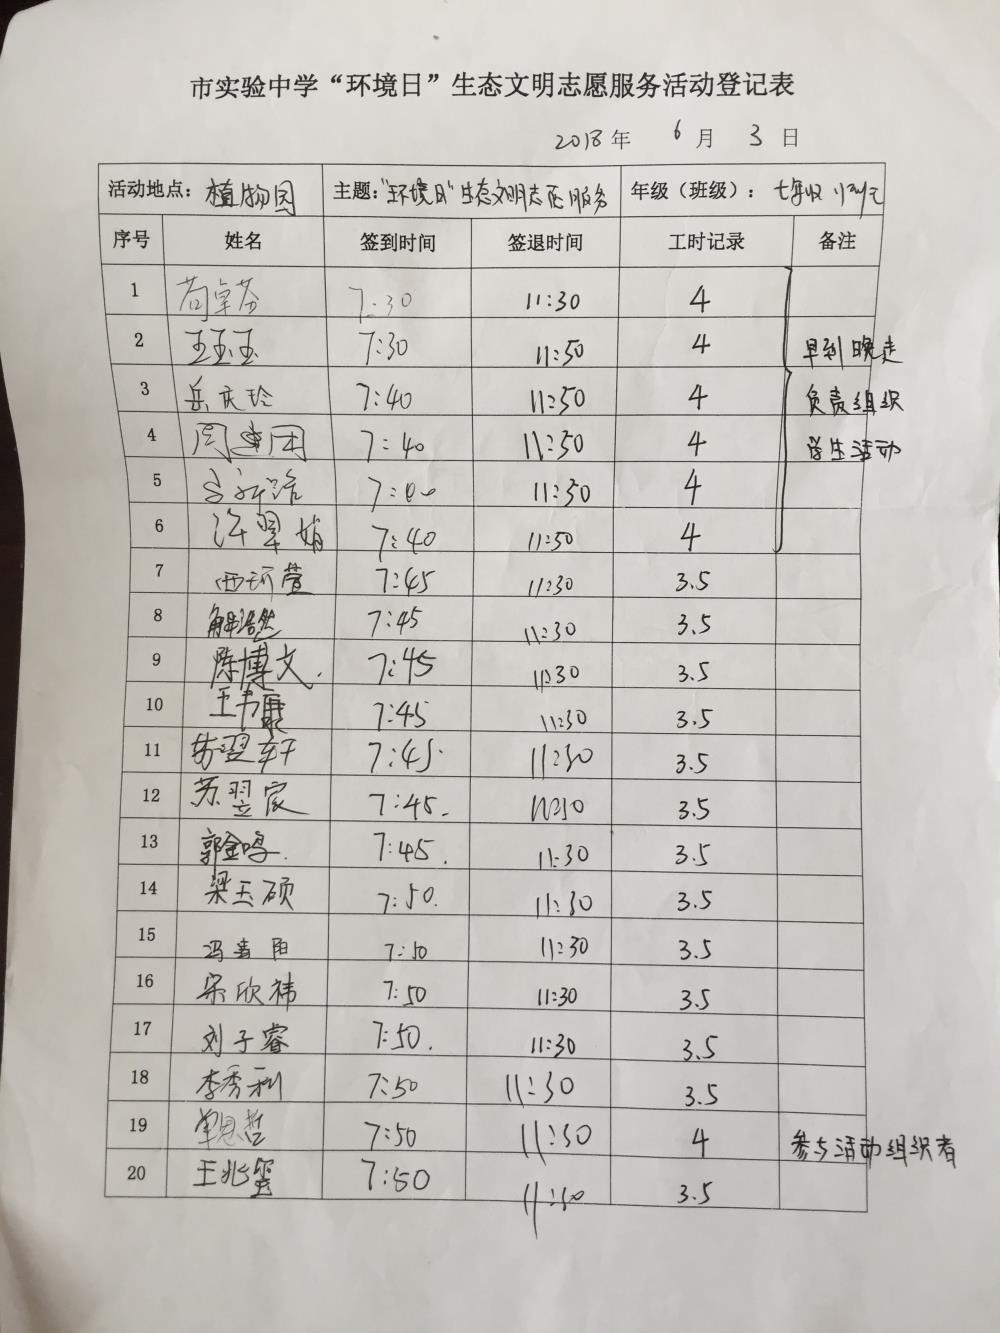 市实验中学“环境日”生态文明志愿服务活动登记表
2018年 6月 3日
活动地点：植物园 主题：“环境日”生态文明志愿服务 年级（班级）：七年级
序号 姓名 签到时间 签退时间 工时记录 备注
1 苟宰芬 7:30 11:30 4
2 王玉玉 7:30 11:50 4 早到晚走
3 岳庆玲 7:40 11:50 4 负责组织
4 周 7:40 11:50 4 学生活动
5 11:50 4
6 许翠娟 7:40 11:50 4
7 西珂萱 7:45 11:30 3.5
8 解浩然 7:45 11:30 3.5
9 陈博文. 7:45 11:30 3.5
10 王书康 7:45 11:30 3.5
11 苏翌轩 7:45. 11:30 3.5
12 苏翌宸 7:45. 3.5
13 郭金鸣. 7:45. 11:30 3.5
14 梁玉硕 7:50. 11:30 3.5
15 冯春阳 7:50 11:30 3.5
16 宋欣祎 7:50 11:30 3.5
17 刘子睿 7:50. 11:30 3.5
18 李秀利 7:50 11:30 3.5
19 单思哲 7:50 11:30 4 参与活动组织者
20 王兆玺 7:50 11:30 3.5